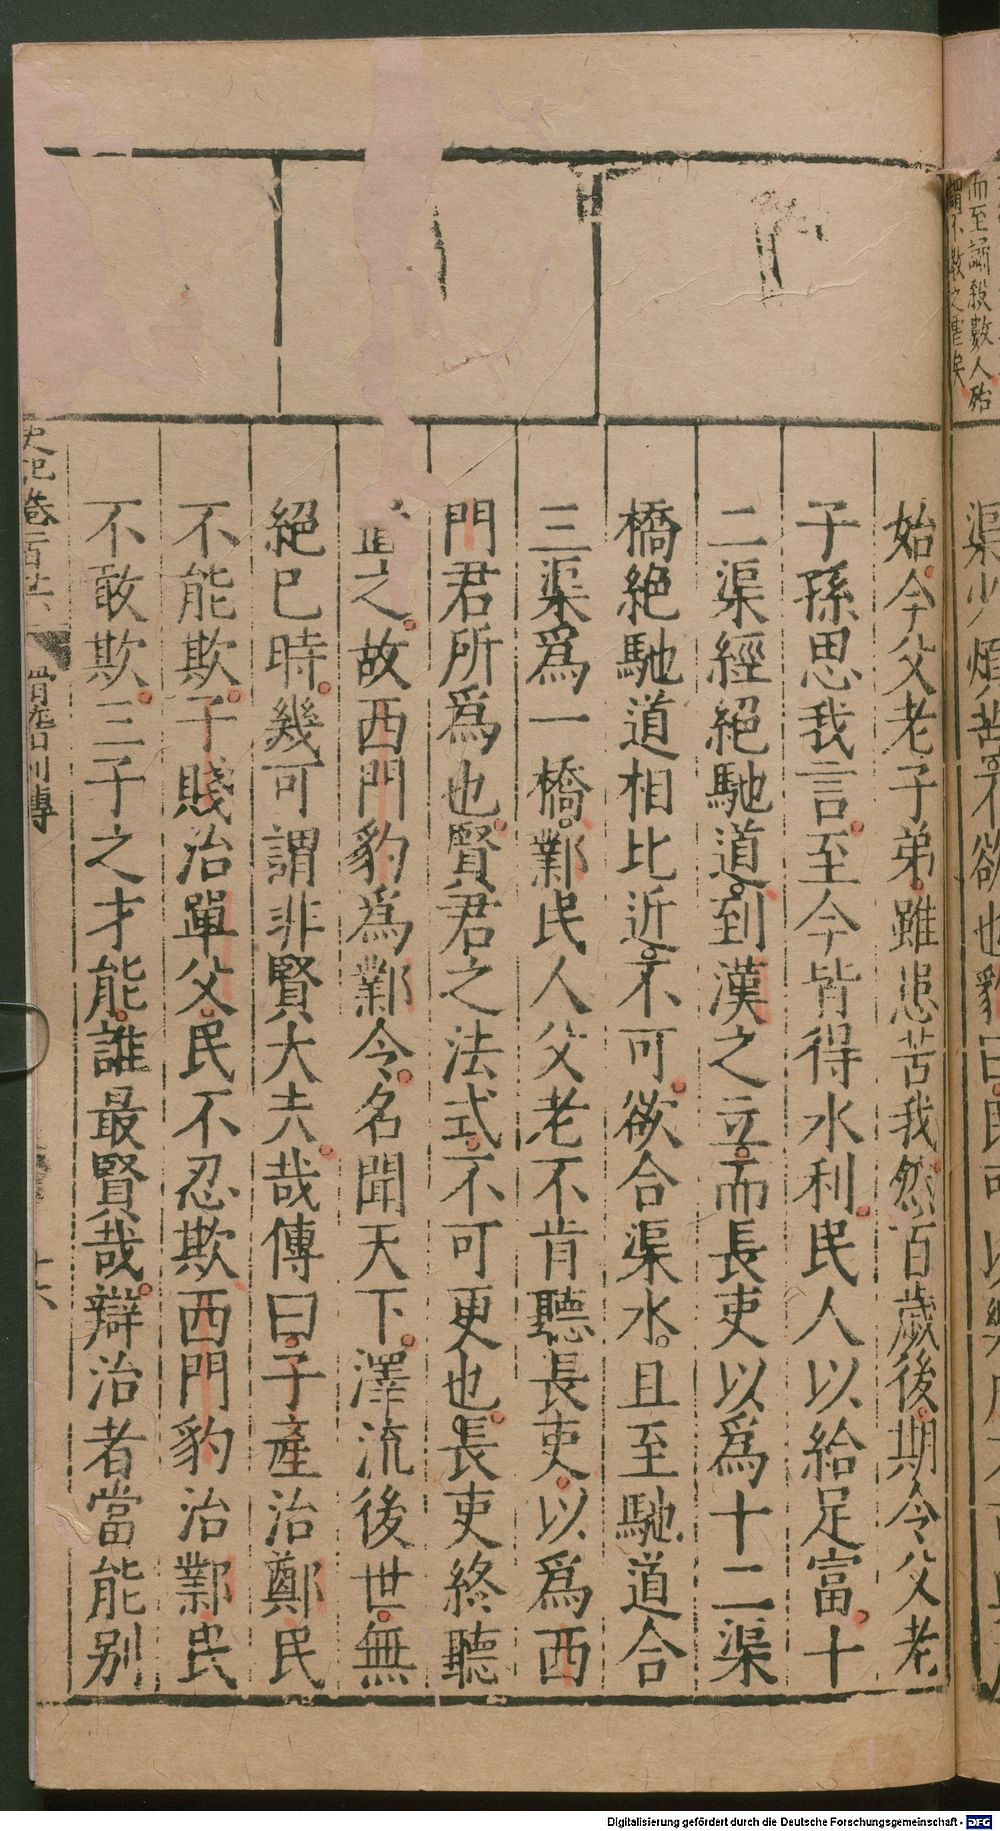 而至誦殺數人殆
謂不教之虐矣
渠少煩苦不欲也豹曰民可以
始今父老子弟雖患苦我然百歲後期令父老
子孫思我言至今皆得水利民人以給足富十
二渠經絕馳道到漢之立而長吏以爲十二渠
橋絕馳道相比近不可欲合渠水且至馳道合
三渠爲一橋鄴民人父老不肯聽長吏以爲西
門君所爲也賢君之法式不可更也長吏終聽
置之故西門豹爲鄴令名聞天下澤流後世無
絕已時幾可謂非賢大夫哉傳曰子產治鄭民
不能欺子賤治單父民不忍欺西門豹治鄴民
不敢欺三子之才能誰最賢哉辯治者當能別
史記卷百廿六 滑稽列傳 十六
Digitalisierung gefördert durch die Deutsche Forschungsgemeinschaft - DFG